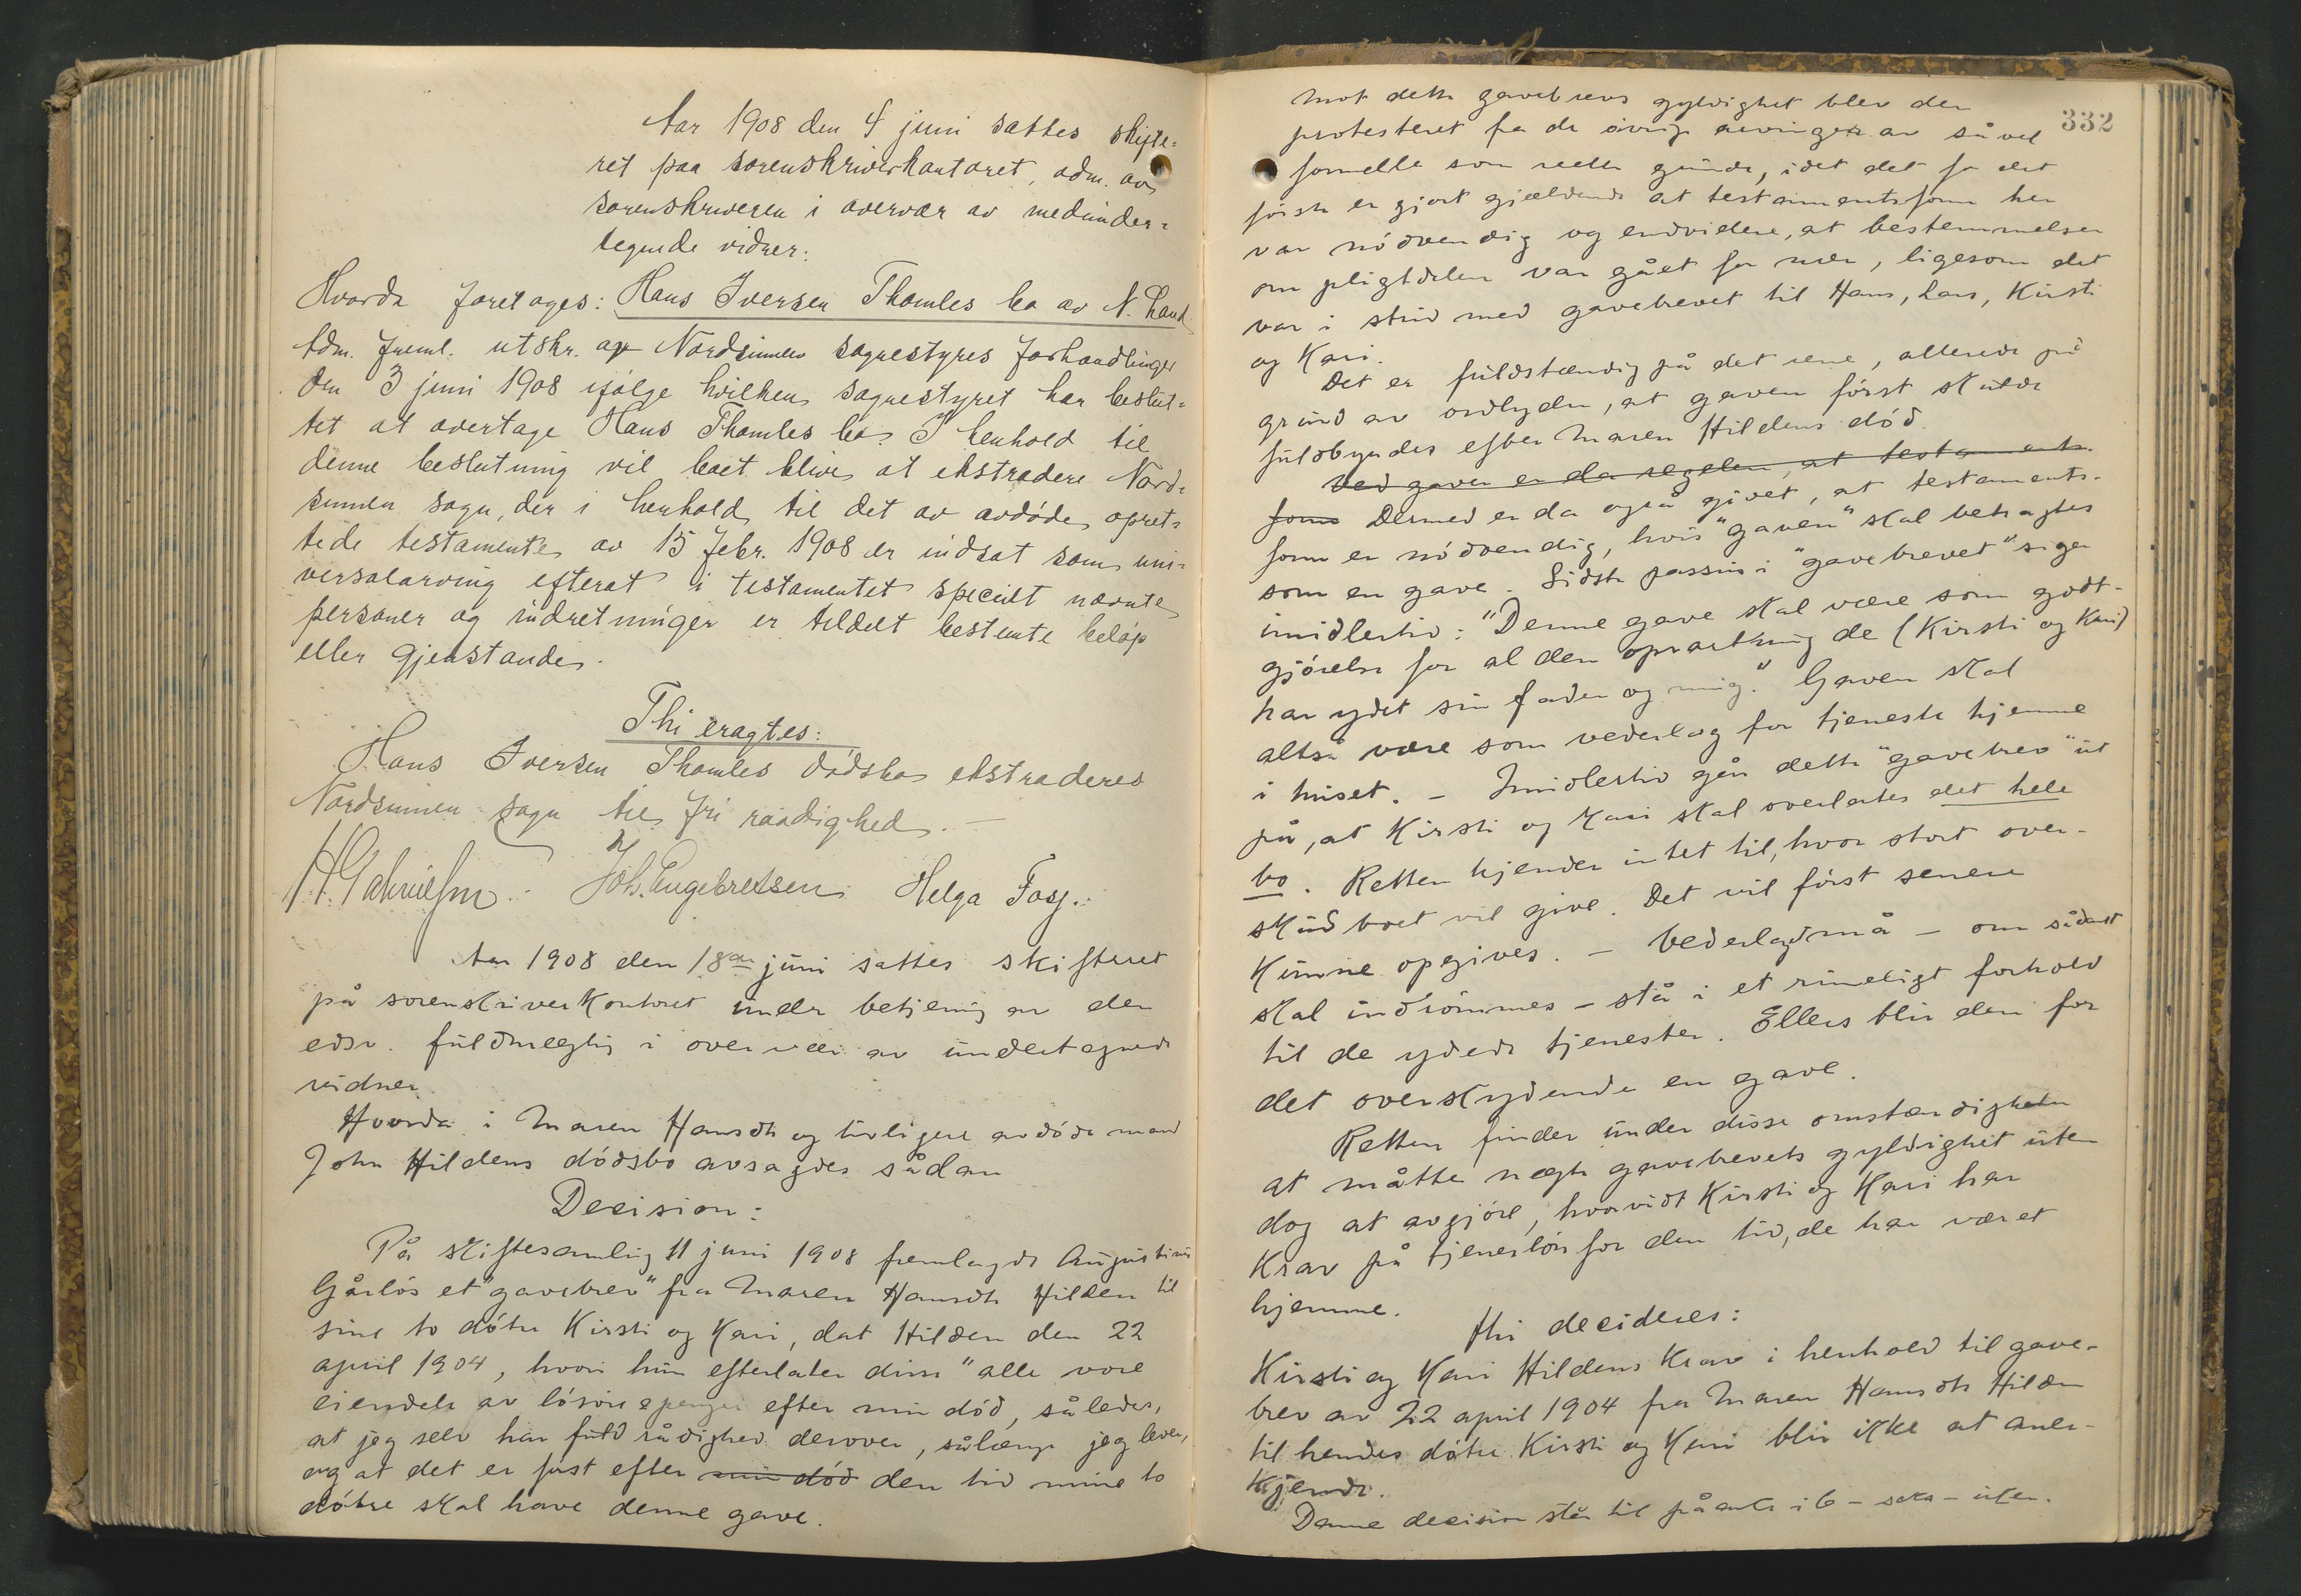 Aar 1908 den 4 juni sattes skifte-
ret paa sorenskriverkontoret, adm. av
sorenskriveren i overvær av medunder-
tegnede vidner:
Hvorda foretages: Hans Iversen Thomles bo av N. Land
Adm. freml. utskr. av Nordsinnen sognestyres forhandlinger
den 3 juni 1908 ifølge hvilken sognestyret har beslut-
tet at overtage Hans Thomles bo. I henhold til
denne beslutning vil boet blive at ekstradere Nord-
sinnen sogn, der i henhold til det av avdøde opret-
tede testamente av 15 febr. 1908 er indsat som uni-
versalarving efterat i testamentet specielt nævnte
personer og indretninger er tildelt bestemte beløp
eller gjenstande.
Thi eragtes:
Hans Iversen Thomles dødsbo ekstraderes
Nordsinnen sogn til fri raadighed. –
Joh. Engebretsen. Helga Foss.
Aar 1908 den 18de juni sattes skifteret
på sorenskriverkontoret under betjening av den
edsv. fuldmægtig i overvær av undertegnede
vidner.
Hvorda i Maren Hansdtr og tidligere avdøde mand
John Hildens dødsbo avsagdes sådan
Decision:
På skiftesamling 11 juni 1908 fremlagde Augustinus
Gårløs et "gavebrev" fra Maren Hansdtr Hilden til
sine to døtre Kirsti og Kari, dat Hilden den 22
april 1904, hvori hun efterlater disse "alle vore
eiendele av løsøre penger efter min død, således,
at jeg selv har fuld rådighed derover, sålænge jeg lever,
og at det er først efter min død den tid mine to
døtre skal have denne gave.
332
Mot dette gavebrevs gyldighet blev der
protesteret fra de øvrige arvinger av såvel
formelle som reelle grunde, idet det for det
første er gjort gjældende at testamentsform her
var nødvendig og endvidere, at bestemmelsen
om pligtdelen var gået for nær, ligesom det
var i strid med gavebrevet til Hans, Lars, Kirsti
og Kari.
Det er fuldstændig på det rene, allerede på
grund av ordlyden, at gaven først skulde
fuldbyrdes efter Maren Hildens død.
Ved gaver er da regelen, at testaments-
form Dermed er da også givet, at testaments-
form er nødvendig, hvis "gaven" skal betragtes
som en gave. Sidste passus i "gavebrevet" siger
imidlertid: "Denne gave skal være som godt-
gjørelse for al den opvartning de (Kirsti og Kari)
har ydet sin fader og mig." Gaven skal
altså være som vederlag for tjeneste hjemme
i huset. – Imidlertid går dette "gavebrev" ut
på, at Kirsti og Kari skal overlates det hele
bo. Retten kjender intet til, hvor stort over-
skud boet vil give. Det vil først senere
kunne opgives. – Vederlaget må – om sådant
skal indrømmes – stå i et rimeligt forhold
til de ydede tjenester. Ellers blir den for
det overskydende en gave.
Retten finder under disse omstændigheter
at måtte nægte gavebrevets gyldighet uten
dog at avgjøre, hvorvidt Kirsti og Kari har
krav på tjenerløn for den tid, de har været
hjemme.
Thi decideres:
Kirsti og Kari Hildens krav i henhold til gave-
brev av 22 april 1904 fra Maren Hansdtr Hilden
til hendes døtre Kirsti og Kari blir ikke at aner-
kjende.
Denne decision står til påanke i 6 – seks – uker.